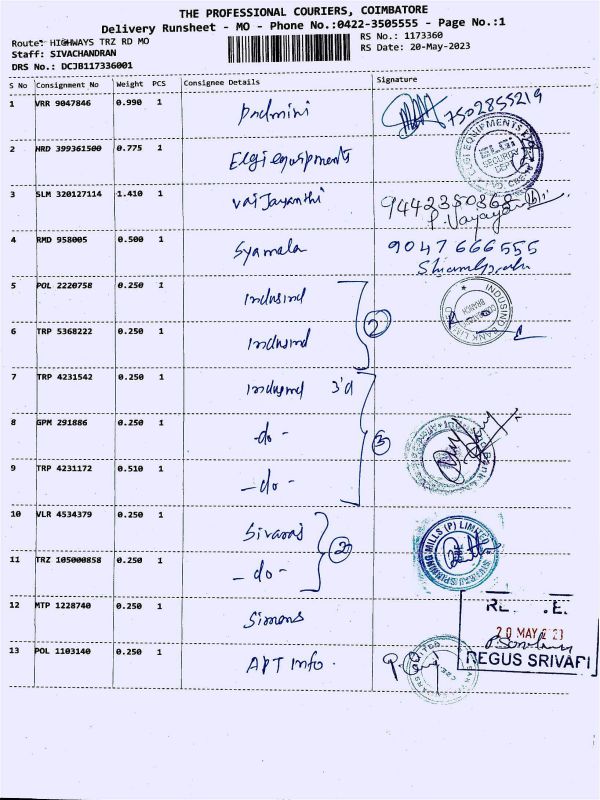 THE PROFESSIONAL COURIERS, COIMBATORE
Delivery Runsheet - MO - Phone No.:0422-3505555 - Page No.:1
Route: HIGHWAYS TRZ RD MO
RS No.: 1173360
Staff: SIVACHANDRAN
RS Date: 20-May-2023
DRS No.: DCJB117336001
S No Consignment No Weight PCS Consignee Details Signature
1 VRR 9047846 0.990 1 Padmini 7502855219
2 HRD 399361500 0.775 1 Elgi equipments
ELGI EQUIPMENTS
ELGI
SECURITY
DEPT
3 SLM 320127114 1.410 1 vaiJayanthi 9442350368
4 RMD 958005 0.500 1 Syamala 9047666555
5 POL 2220758 0.250 1 Indusind
INDUSIND BANK LIMITED
COIMBATORE
BRANCH
6 TRP 5368222 0.250 1 Indusind
2
7 TRP 4231542 0.250 1 Indusind
8 GPM 291886 0.250 1 -do-
3
9 TRP 4231172 0.510 1 -do-
10 VLR 4534379 0.250 1 Sivaraj
2
SPINNING MILLS (P) LIMITED
11 TRZ 105000858 0.250 1 -do-
12 MTP 1228740 0.250 1 Simens
20 MAY 2023
REGUS SRIVARI
13 POL 1103140 0.250 1 APT Info.